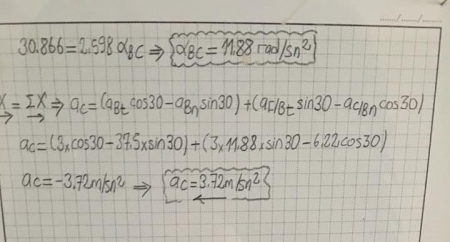 30.866=2.598 αBC ⇒ αBC=11.88 rad/sn²
X = ΣX ⇒ ac=(aBt cos30-aBn sin30)+(ac/Bt sin30-ac/Bn cos30)
ac=(3xcos30-37.5xsin30)+(3x11.88xsin30-6.22cos30)
ac=-3.72m/sn² ⇒ ac=3.72m/sn²